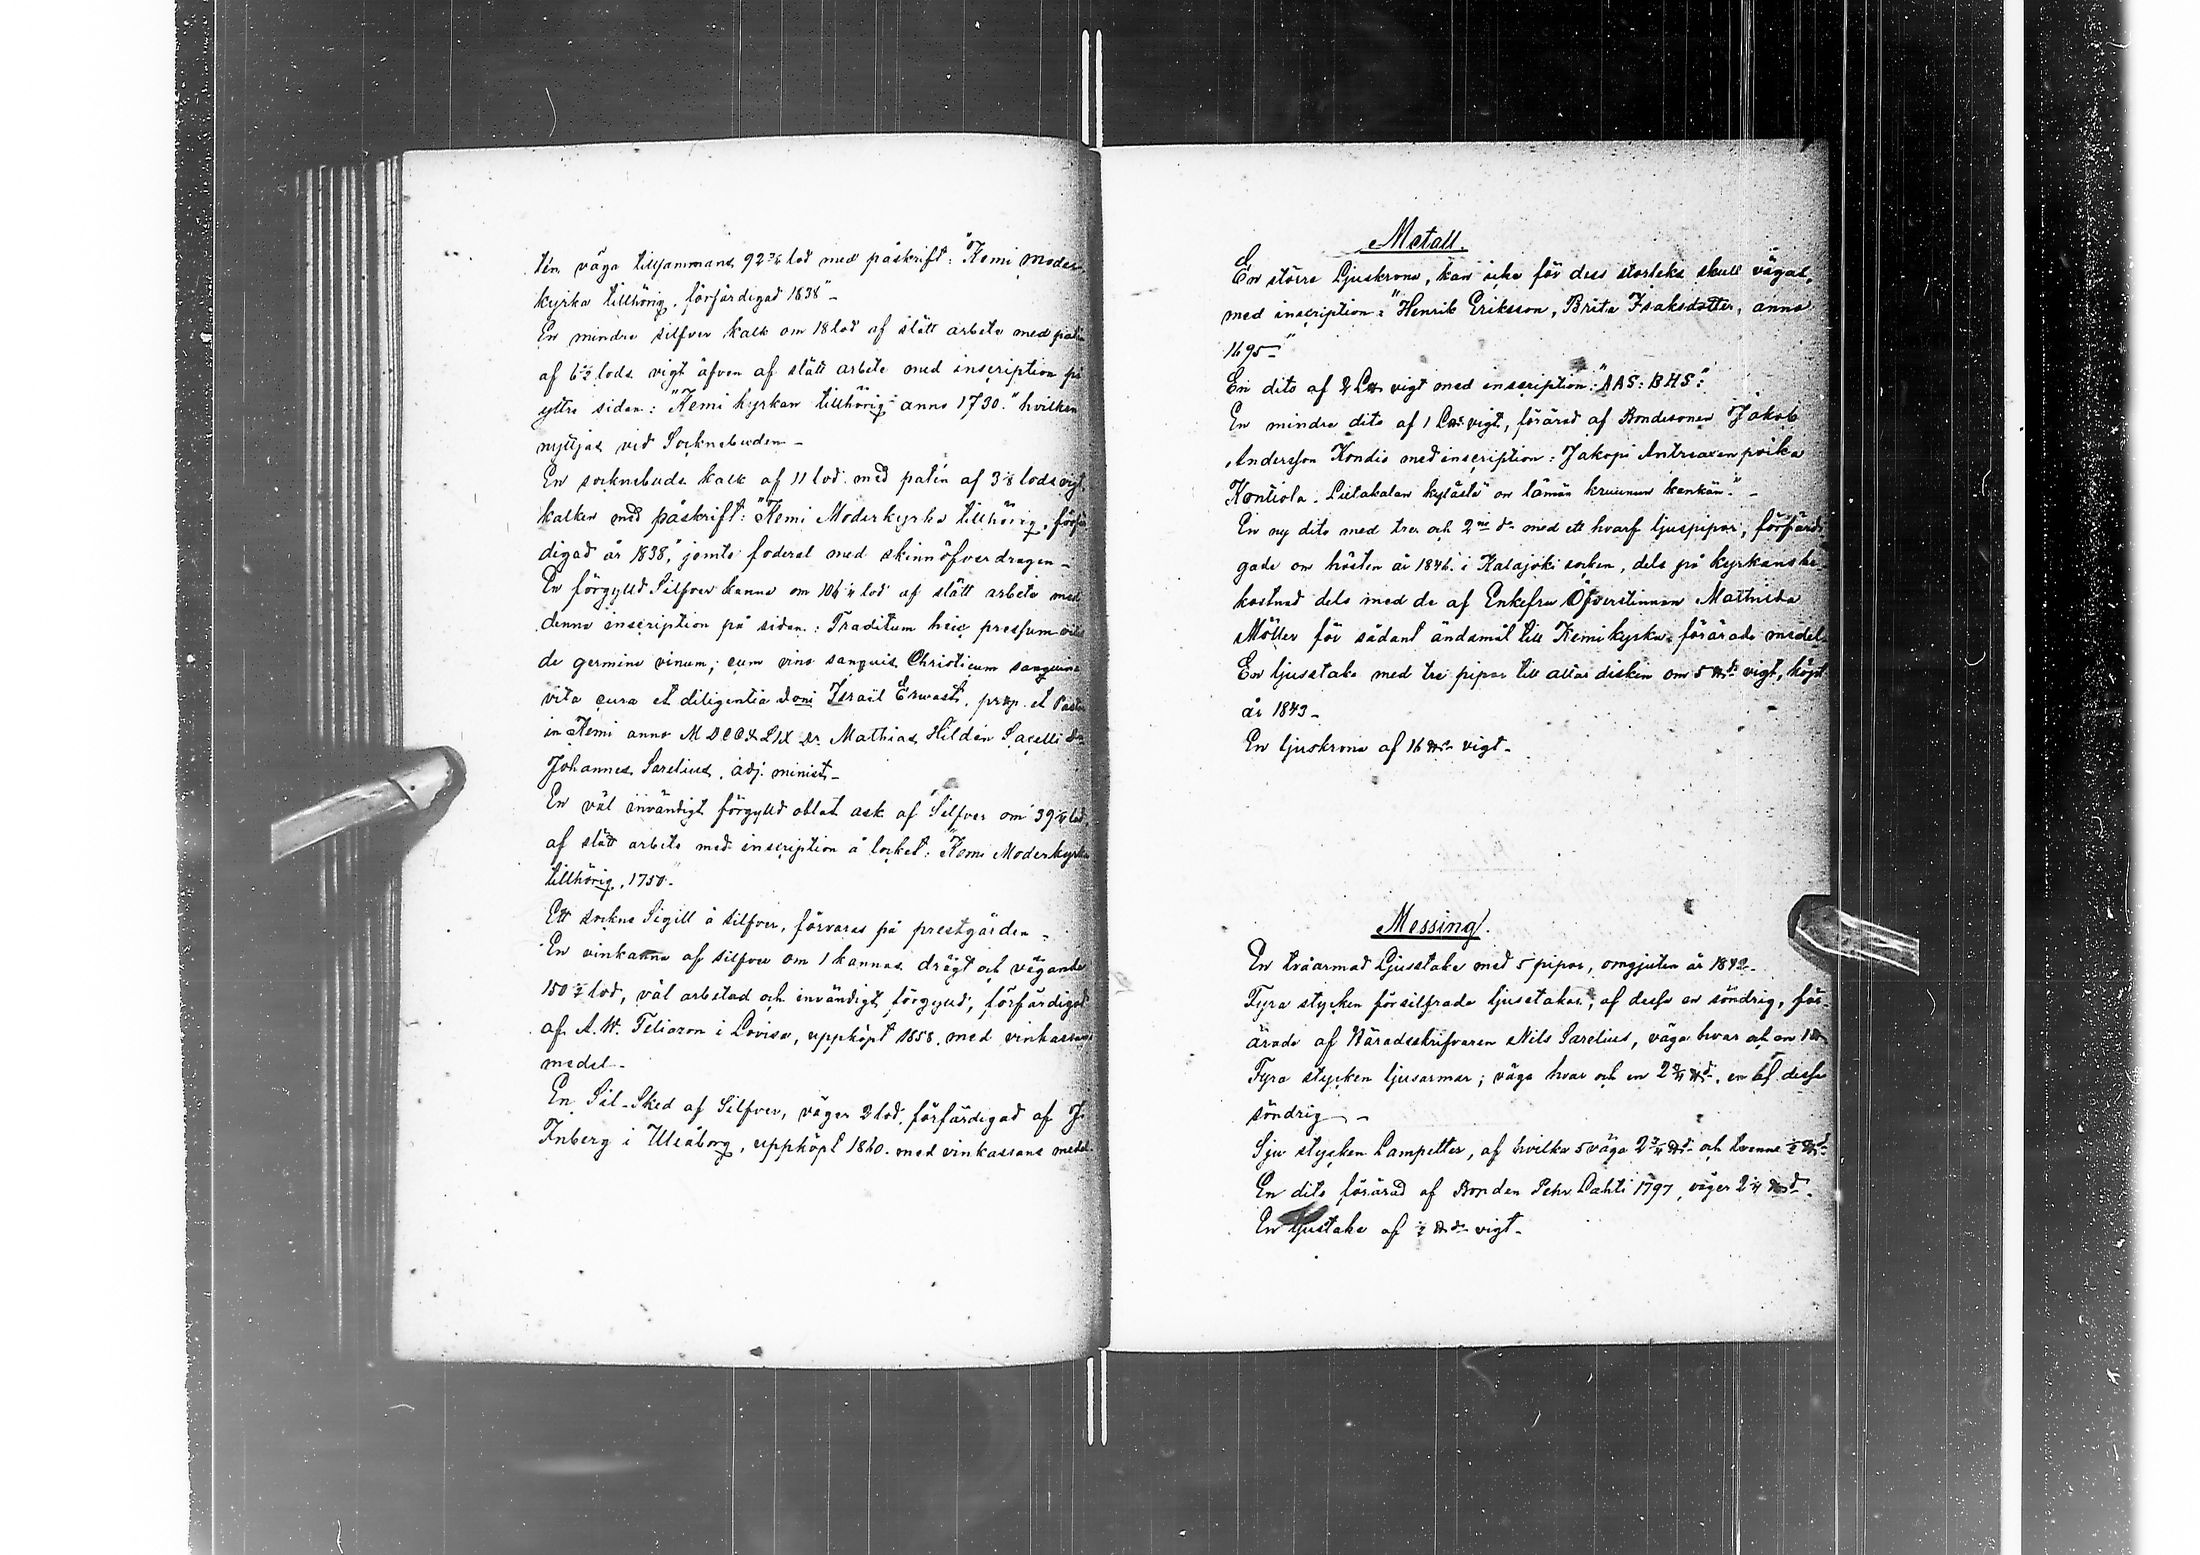 tén väga tillsammans 92 3/4 lod med påskrift: "Kemi Moder
kyrka tillhörig, förfärdigad 1838"-
En mindre silfver kalk om 18 lod af slätt arbete med patén
af 6 1/2 lods vigt äfven af slätt arbete med inscription på
yttre sidan: "Kemi kyrkan tillhörig anno 1730." hvilken
nyttjas vid Socknebuden-
En socknebuds kalk af 11 lod med patén af 3 1/8 lods vigt,
kalken med påskrift: "Kemi Moderkyrka tillhörig, förfär
digad år 1838," jemte foderal med skinn öfverdragen-
En förgylld Silfver kanna om 106 1/4 lod af slätt arbete med
denna inscription på sidan: Traditum heic pressum
de germine vinum, cum vino sanguis Christi cum sanguine
vita cura et diligentia Doni Israël Erwast, præp. et Pastor
in Kemi anno Dr. Mathias Hildén Sacelli Dr
Johannes Sarelius, adj. minist-
En väl invändigt förgylld oblat ask af Silfver om 39 1/4 lod,
af slätt arbete med inscription å locket: "Kemi Moderkyrka
tillhörig, 1750"-
Ett sockne Sigill å silfver, förvaras på prestgården-
En vinkanna af silfver om 1 kannas drägt och vägande
150 1/2 lod, väl arbetad och invändigt förgylld, förfärdigad
af A. W. Feliczon i Lovisa, uppköpt 1858. med vinkassans
medel-
En Sil-Sked af Silfver, väger 2 lod, förfärdigad af J.
Inberg i Uleåborg, uppköpt 1860. med vinkassans medel-
Metall.
En större Ljuskrona, kan icke för dess storleks skull vägas,
med inscription: "Henrik Eriksson, Brita Isaksdotter, anno
1695-"
En dito af 2 L℔ vigt med inscription: "AAS: BHS":
En mindre dito af 1 L℔ vigt, förärad af Bondesonen Jakob
Andersson Kondio med inscription: Jakopi Antreaxen poika
Kontiola Lietakalan kylästä on tämän kruunun kenkän."-
En ny dito med tre och 2ne do med ett hvarf ljuspipor, förfärdi
gade om hösten år 1846 i Kalajoki socken, dels på kyrkans be
kostnad dels med de af Enkefru Öfverstinnan Mathilda
Möller för sådant ändamål till Kemi kyrka förärade medel-
En ljusstake med tre pipor till altar disken om 5 ℔ds vigt, köpt
år 1843-
En ljuskrona af 16 ℔ds vigt-
Messing.
En tvåarmad Ljusstake med 5 pipor, omgjuten år 1842-
Fyra stycken försilfrade ljusstakar, af dessa en söndrig, för-
ärade af Häradsskrifvaren Nils Sarelius, väga hvar och en 1 ℔
Fyra stycken ljusarmar; väga hvar och en 2 3/4 ℔d, en af dessa
söndrig-
Sju stycken Lampetter, af hvilka 5 väga 2 3/4 ℔d och tvenne 1/2 ℔d
En dito förärad af Bonden Pehr Lahti 1797, väger 2 1/4 ℔d.
En ljustake af 1/2 ℔ds vigt-